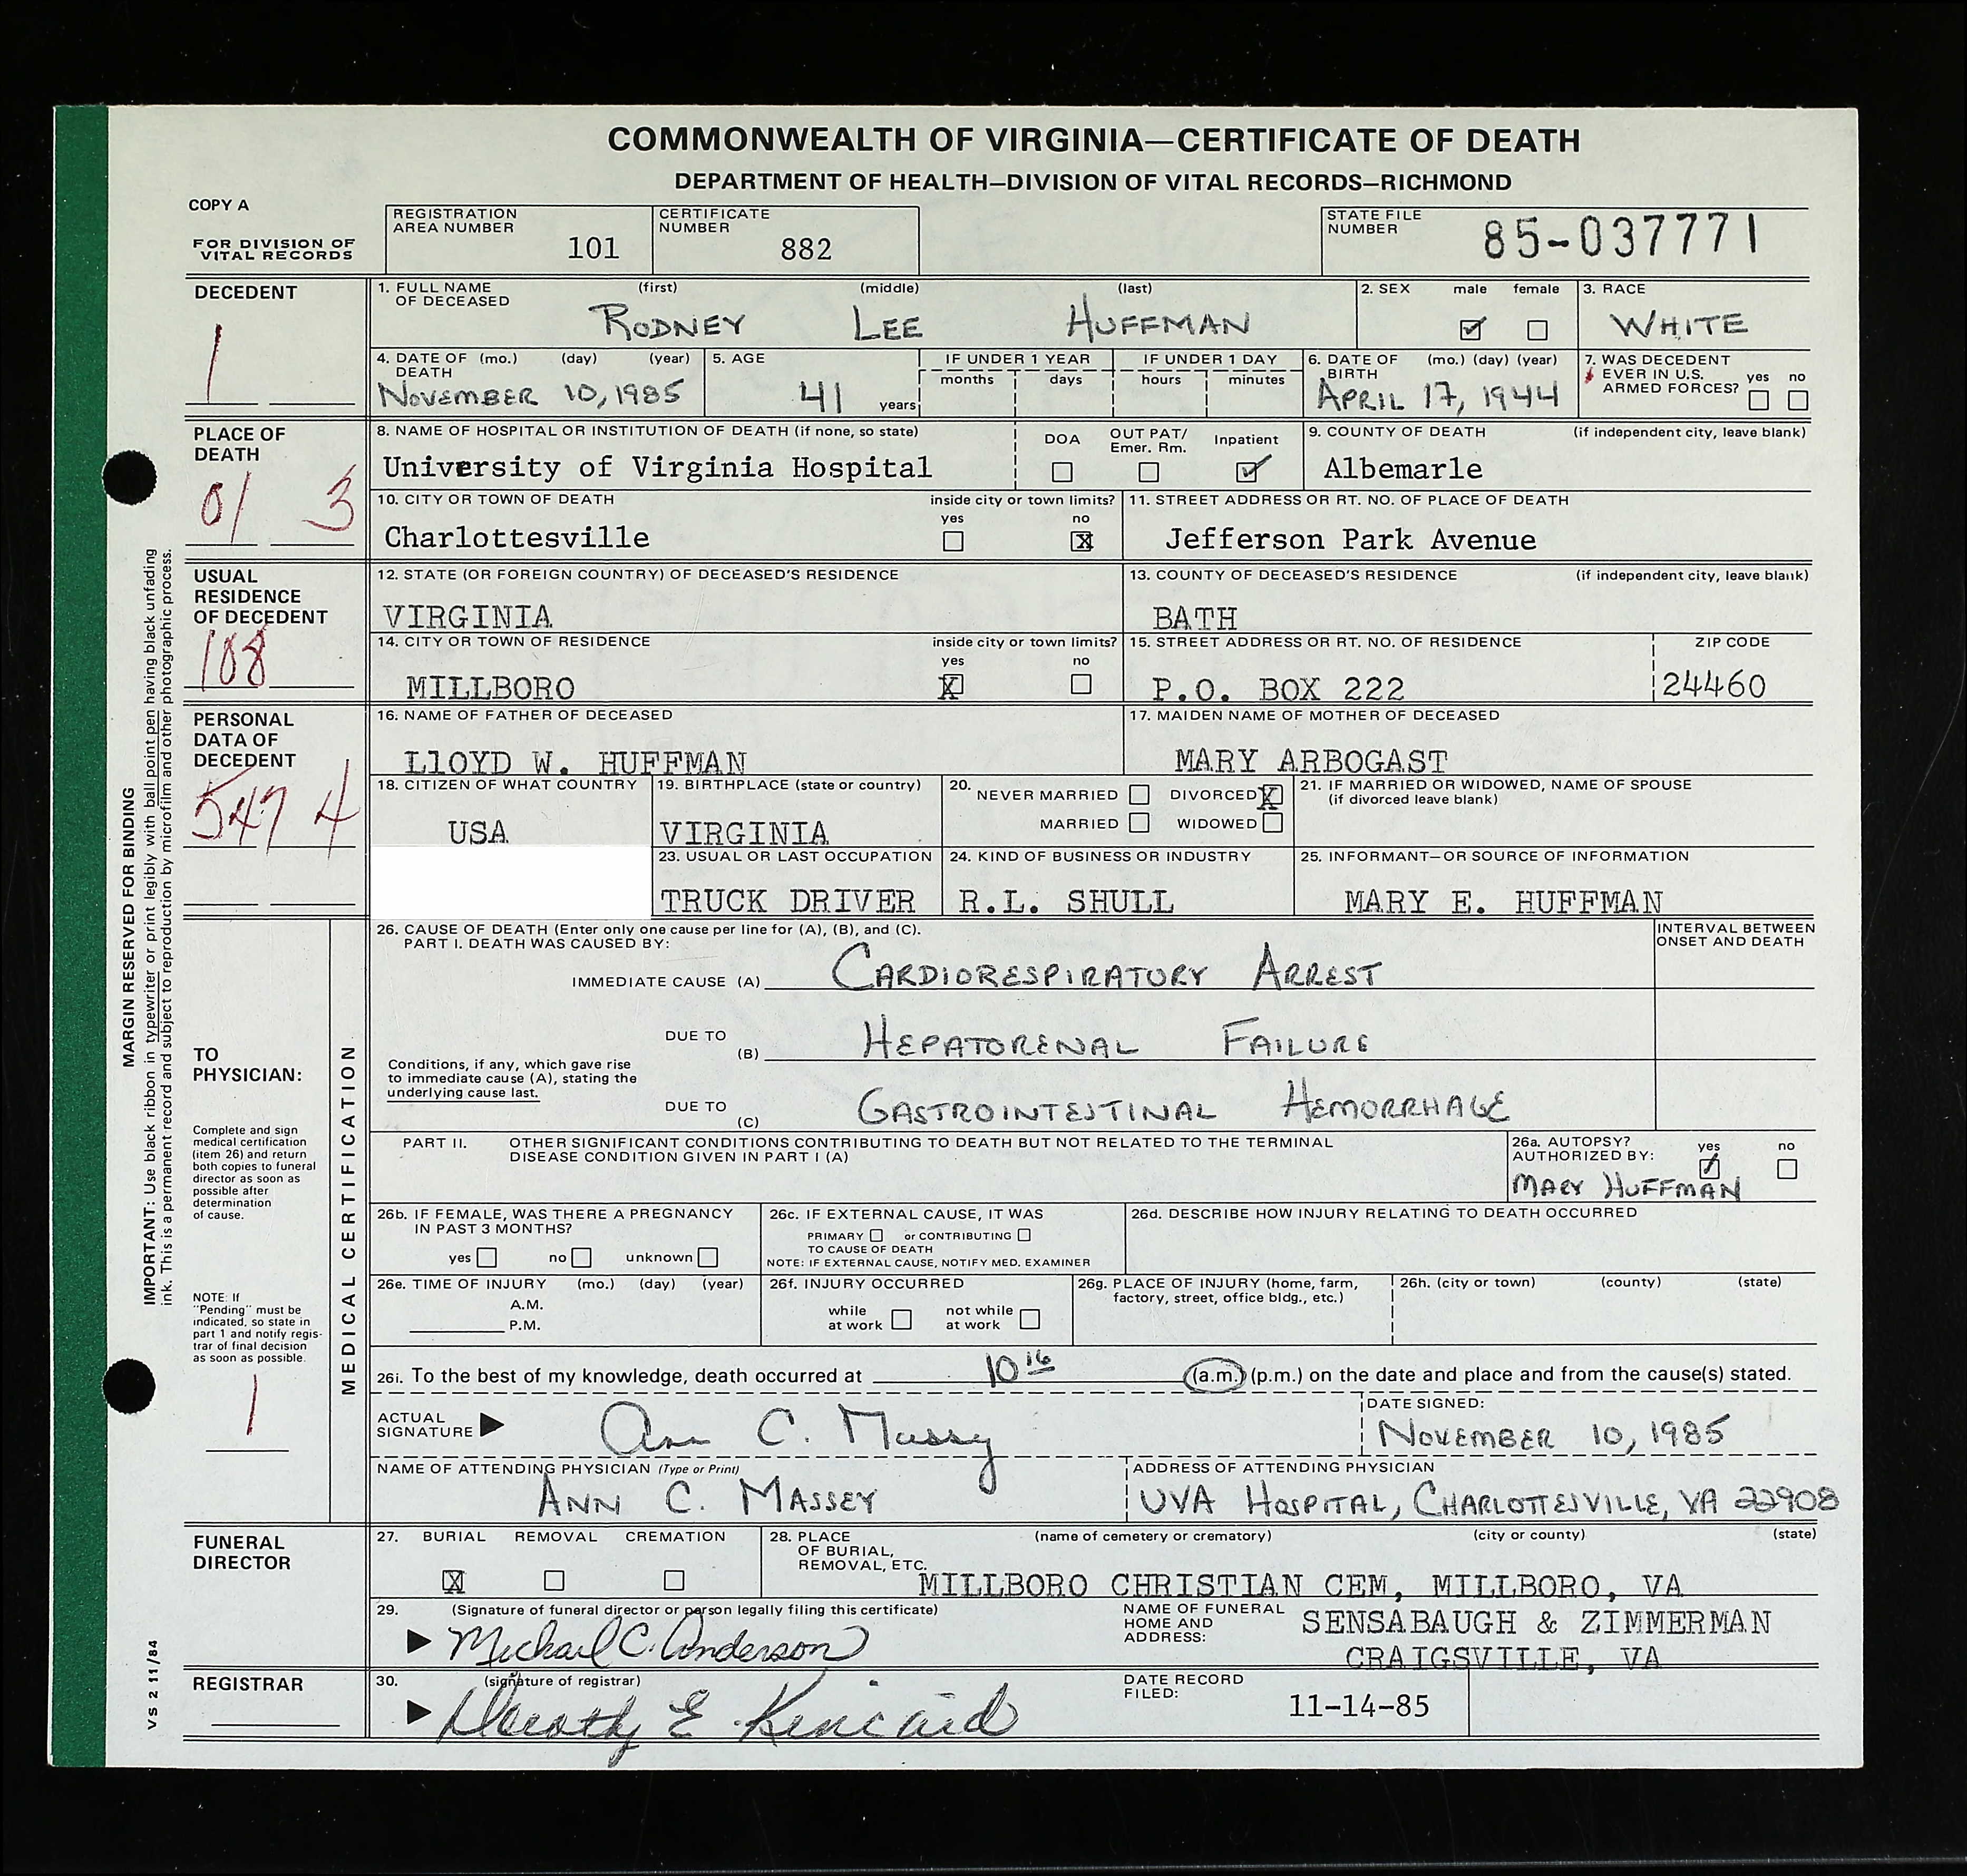 COMMONWEALTH OF VIRGINIA—CERTIFICATE OF DEATH
DEPARTMENT OF HEALTH—DIVISION OF VITAL RECORDS—RICHMOND
COPY A
FOR DIVISION OF VITAL RECORDS
REGISTRATION AREA NUMBER 101
CERTIFICATE NUMBER 882
STATE FILE NUMBER 85-037771
DECEDENT
1
1. FULL NAME OF DECEASED (first) (middle) (last)
RODNEY LEE HUFFMAN
2. SEX male female
3. RACE
WHITE
4. DATE OF DEATH (mo.) (day) (year)
NOVEMBER 10, 1985
5. AGE
41 years
IF UNDER 1 YEAR
months days
IF UNDER 1 DAY
hours minutes
6. DATE OF BIRTH (mo.) (day) (year)
APRIL 17, 1944
7. WAS DECEDENT EVER IN U.S. ARMED FORCES? yes no
PLACE OF DEATH
01 3
8. NAME OF HOSPITAL OR INSTITUTION OF DEATH (if none, so state)
University of Virginia Hospital
DOA OUT PAT/ Emer. Rm. Inpatient
9. COUNTY OF DEATH (if independent city, leave blank)
Albemarle
10. CITY OR TOWN OF DEATH
Charlottesville
inside city or town limits?
yes no
X
11. STREET ADDRESS OR RT. NO. OF PLACE OF DEATH
Jefferson Park Avenue
USUAL RESIDENCE OF DECEDENT
108
12. STATE (OR FOREIGN COUNTRY) OF DECEASED'S RESIDENCE
VIRGINIA
13. COUNTY OF DECEASED'S RESIDENCE (if independent city, leave blank)
BATH
14. CITY OR TOWN OF RESIDENCE
MILLBORO
inside city or town limits?
yes no
X
15. STREET ADDRESS OR RT. NO. OF RESIDENCE
P.O. BOX 222
ZIP CODE
24460
PERSONAL DATA OF DECEDENT
547 4
16. NAME OF FATHER OF DECEASED
LlOYD W. HUFFMAN
17. MAIDEN NAME OF MOTHER OF DECEASED
MARY ARBOGAST
18. CITIZEN OF WHAT COUNTRY
USA
19. BIRTHPLACE (state or country)
VIRGINIA
20. NEVER MARRIED DIVORCED X
MARRIED WIDOWED
21. IF MARRIED OR WIDOWED, NAME OF SPOUSE (if divorced leave blank)
23. USUAL OR LAST OCCUPATION
TRUCK DRIVER
24. KIND OF BUSINESS OR INDUSTRY
R.L. SHULL
25. INFORMANT—OR SOURCE OF INFORMATION
MARY E. HUFFMAN
MARGIN RESERVED FOR BINDING
IMPORTANT: Use black ribbon in typewriter or print legibly with ball point pen having black unfading
ink. This is a permanent record and subject to reproduction by microfilm and other photographic process.
TO PHYSICIAN:
Complete and sign
medical certification
(item 26) and return
both copies to funeral
director as soon as
possible after
determination
of cause.
NOTE: If
"Pending" must be
indicated, so state in
part 1 and notify regis-
trar of final decision
as soon as possible.
1
MEDICAL CERTIFICATION
26. CAUSE OF DEATH (Enter only one cause per line for (A), (B), and (C).
PART I. DEATH WAS CAUSED BY:
INTERVAL BETWEEN ONSET AND DEATH
IMMEDIATE CAUSE (A) CARDIORESPIRATORY ARREST
DUE TO (B) HEPATORENAL FAILURE
Conditions, if any, which gave rise
to immediate cause (A), stating the
underlying cause last.
DUE TO (C) GASTROINTESTINAL HEMORRHAGE
PART II. OTHER SIGNIFICANT CONDITIONS CONTRIBUTING TO DEATH BUT NOT RELATED TO THE TERMINAL
DISEASE CONDITION GIVEN IN PART I (A)
26a. AUTOPSY? yes no
AUTHORIZED BY:
MARY HUFFMAN
26b. IF FEMALE, WAS THERE A PREGNANCY
IN PAST 3 MONTHS?
yes no unknown
26c. IF EXTERNAL CAUSE, IT WAS
PRIMARY or CONTRIBUTING
TO CAUSE OF DEATH
NOTE: IF EXTERNAL CAUSE, NOTIFY MED. EXAMINER
26d. DESCRIBE HOW INJURY RELATING TO DEATH OCCURRED
26e. TIME OF INJURY (mo.) (day) (year)
A.M.
P.M.
26f. INJURY OCCURRED
while at work not while at work
26g. PLACE OF INJURY (home, farm,
factory, street, office bldg., etc.)
26h. (city or town) (county) (state)
26i. To the best of my knowledge, death occurred at 10 16 (a.m.) (p.m.) on the date and place and from the cause(s) stated.
ACTUAL SIGNATURE Ann C. Massey
DATE SIGNED:
NOVEMBER 10, 1985
NAME OF ATTENDING PHYSICIAN (Type or Print)
ANN C. MASSEY
ADDRESS OF ATTENDING PHYSICIAN
UVA HOSPITAL, CHARLOTTESVILLE, VA 22908
FUNERAL DIRECTOR
27. BURIAL REMOVAL CREMATION
X
28. PLACE OF BURIAL, REMOVAL, ETC. (name of cemetery or crematory) (city or county) (state)
MILLBORO CHRISTIAN CEM, MILLBORO, VA
29. (Signature of funeral director or person legally filing this certificate)
Michael C. Anderson
NAME OF FUNERAL HOME AND ADDRESS:
SENSABAUGH & ZIMMERMAN
CRAIGSVILLE, VA
REGISTRAR
30. (signature of registrar)
Dorothy E. Kincaid
DATE RECORD FILED:
11-14-85
VS 2 11/84